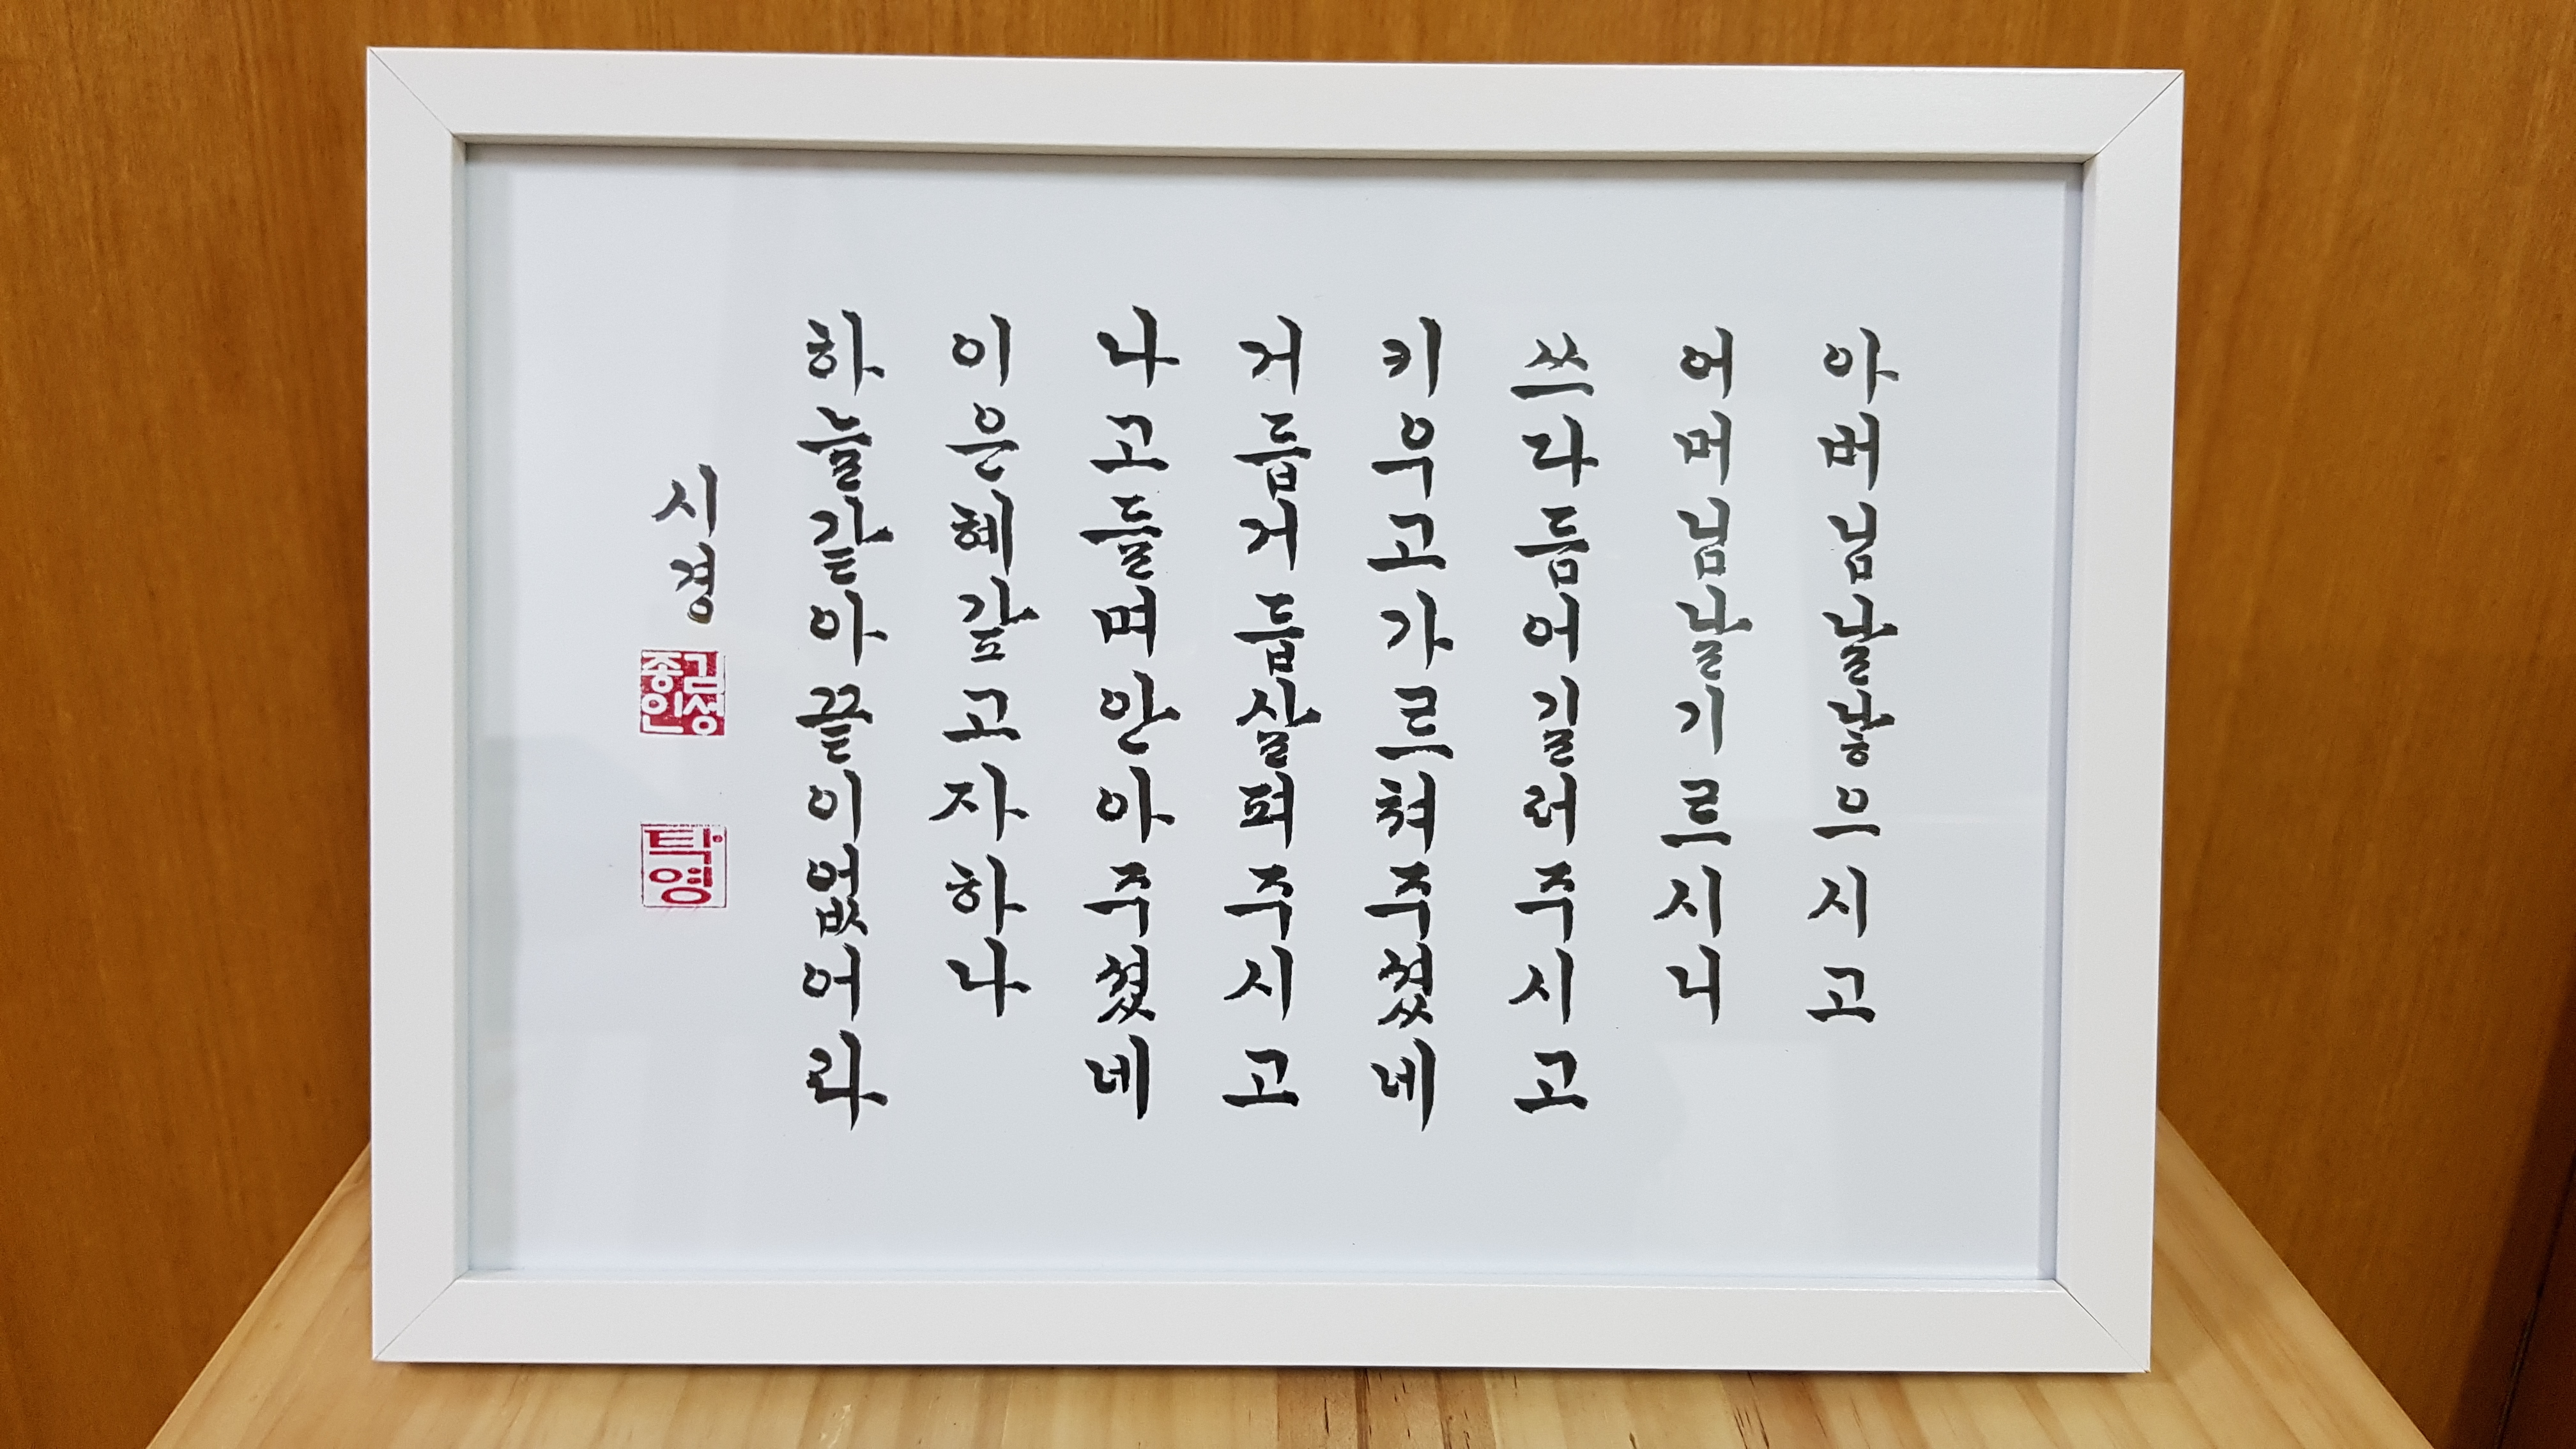 아버님날낳으시고
어머님날기르시니
쓰라듬어길러주시고
키우고가르쳐주셨네
거듭거듭살펴주시고
나고들며안아주셨네
이은혜갚고자하나
하늘같아끝이없어라
시경
김성종인
탁영